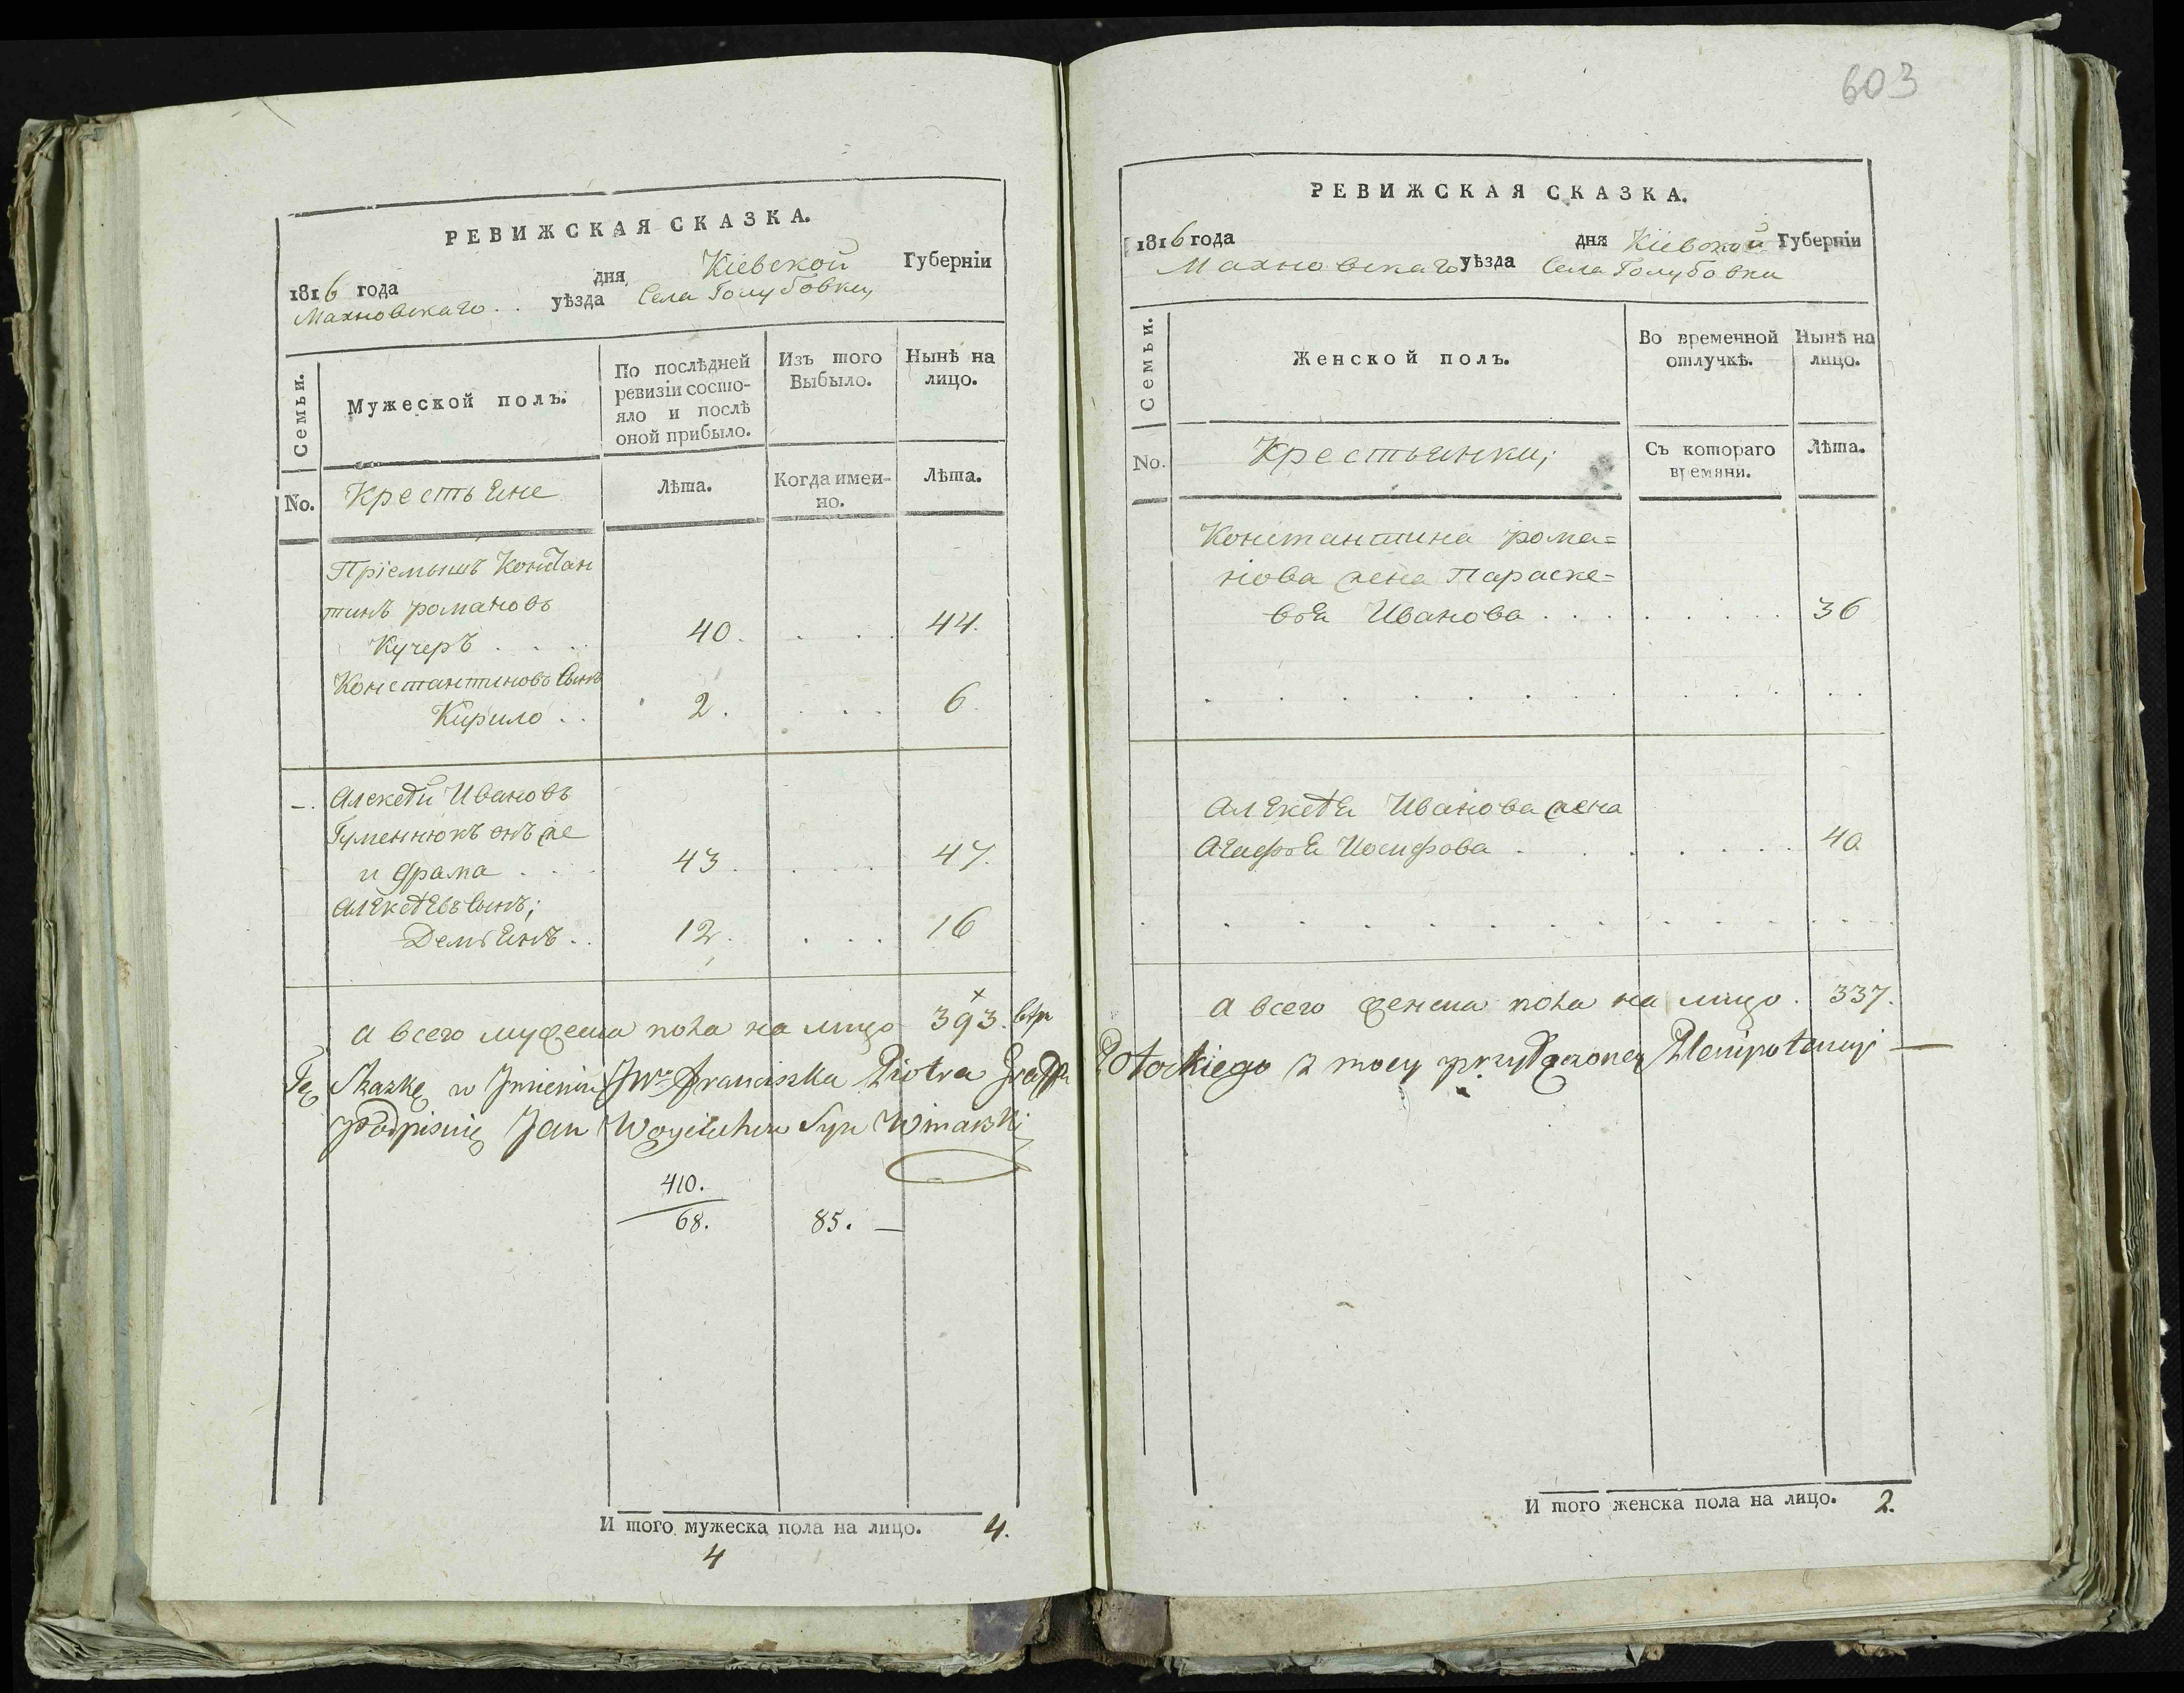 603
РЕВИЖСКАЯ СКАЗКА.
1816 года дня Кіевской Губерніи
Махновскаго уѣзда Села Голубовки,
Семьи.
Мужеской полъ.
По послѣдней ревизіи состояло и послѣ оной прибыло.
Изъ того Выбыло.
Нынѣ на лицо.
No.
Крестьяне
Лѣта.
Когда именно.
Лѣта.
Пріемышъ Констан
тинъ романовъ
Кучеръ . . . 40. . . . 44.
Константиновъ Сынъ
Кирило . . 2. . . . 6.
Алексѣй Ивановъ
Гуменнюкъ онъ же
и . . . 43. . . . 47.
Алексѣевъ Сынъ;
Демьянъ . . 12. . . . 16
а всего мужеска пола на лицо 393.
Tę Skazkę w Jmieniu JWo Franciszka Piotra Graffa Potockiego z mocy Plenipotencyi —
Podpisuię Jan Woyciecha Syn
410.
68. 85. —
И того мужеска пола на лицо. 4.
4
РЕВИЖСКАЯ СКАЗКА.
1816 года дня Кіевской Губерніи
Махновскаго уѣзда Села Голубовки
Семьи.
Женской полъ.
Во временной отлучкѣ.
Нынѣ на лицо.
No.
Крестьянки;
Съ котораго времяни.
Лѣта.
Константина рома=
нова жена Параске=
вья Иванова . . . . . . . 36
Алексѣя Иванова жена
Агафья Иосифова . . . . . . 40
а всего женска пола на лицо. 337.
И того женска пола на лицо. 2.